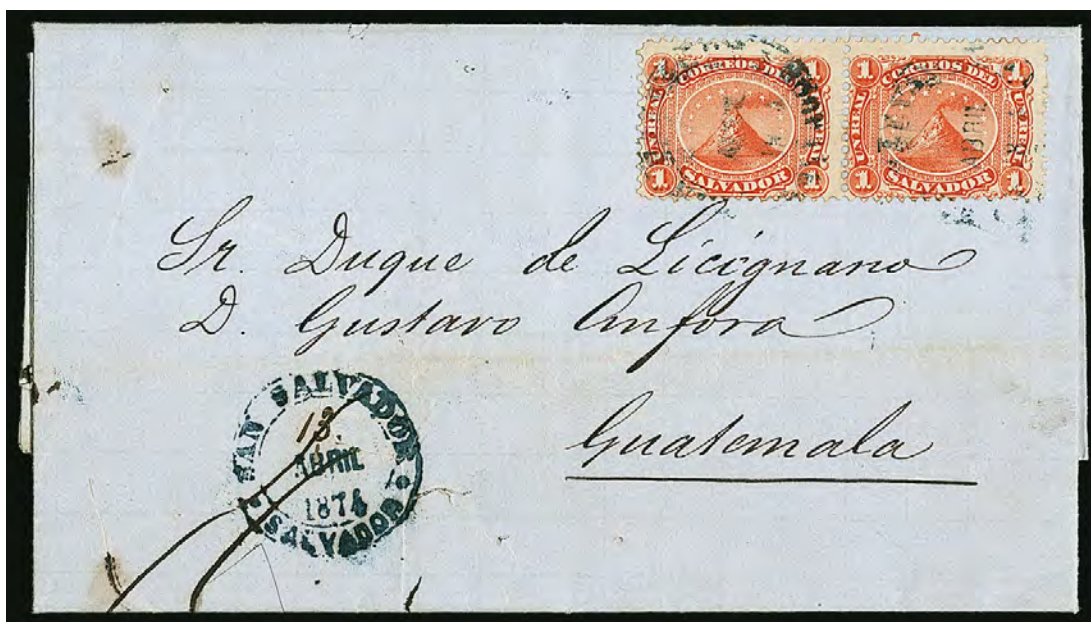 1 CORREOS DEL 1
UN REAL UN REAL
1 SALVADOR 1
1 CORREOS DEL 1
UN REAL UN REAL
1 SALVADOR 1
ABRIL
Sr. Duque de Licignano
D. Gustavo Anfora
Guatemala
SAN SALVADOR
13.
ABRIL
1874
SALVADOR